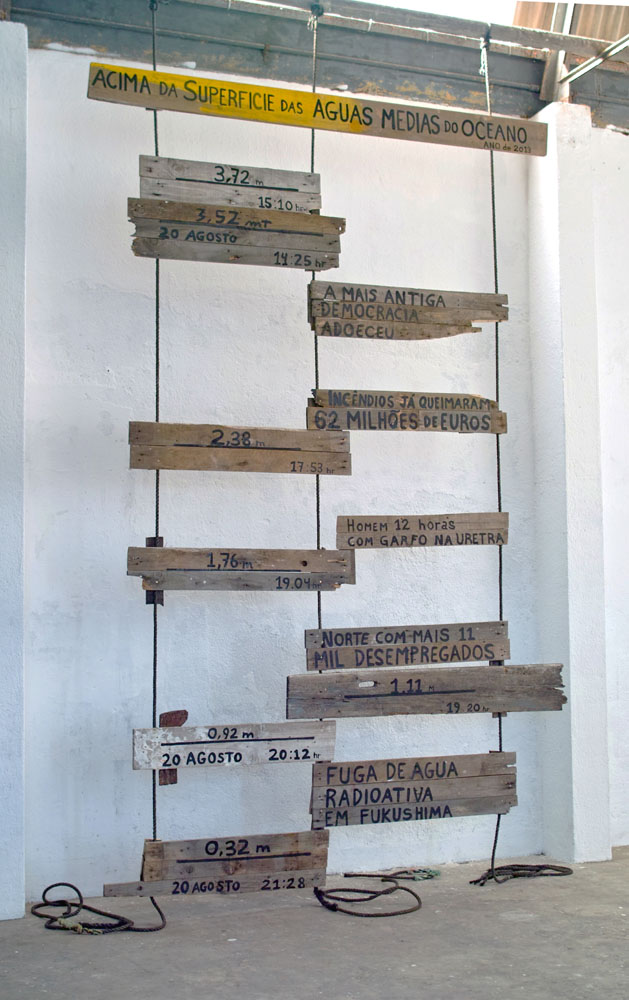 ACIMA DA SUPERFICIE DAS AGUAS MEDIAS DO OCEANO
ANO de 2013
3,72 m
15:10 hr
3,52 mT
20 AGOSTO
14:25 hr
A MAIS ANTIGA
DEMOCRACIA
ADOECEU
INCÊNDIOS JÁ QUEIMARAM
62 MILHÕES DE EUROS
2,38 m
17:53 hr
HOMEM 12 horas
COM GARFO NA URETRA
1,76 m
19.04 hr
NORTE COM MAIS 11
MIL DESEMPREGADOS
1.11 m
19 20 hr
0,92 m
20 AGOSTO 20:12 hr
FUGA DE AGUA
RADIOATIVA
EM FUKUSHIMA
0,32 m
20 AGOSTO 21:28